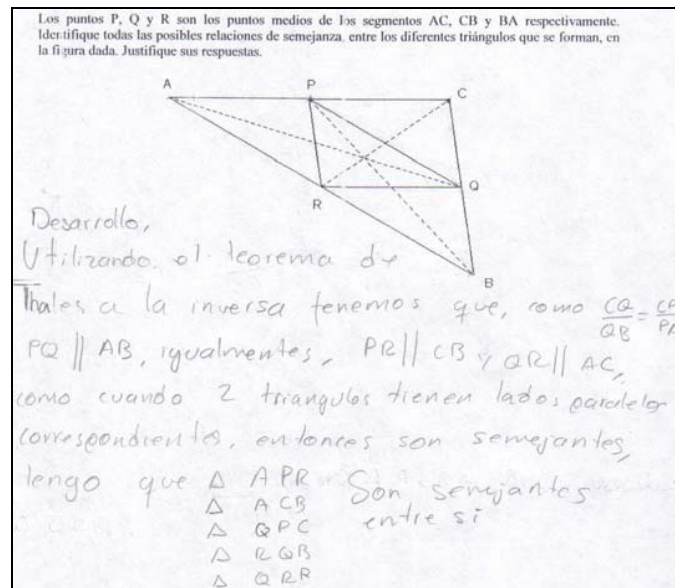 Los puntos P, Q y R son los puntos medios de los segmentos AC, CB y BA respectivamente.
Identifique todas las posibles relaciones de semejanza entre los diferentes triángulos que se forman, en
la figura dada. Justifique sus respuestas.
A P C
R Q
B
Desarrollo,
Utilizando el teorema de
Thales a la inversa tenemos que, como CQ/QB = CP/PA
PQ || AB, igualmente, PR || CB y QR || AC,
como cuando 2 triangulos tienen lados paralelos
correspondientes, entonces son semejantes,
tengo que △ APR Son semejantes
△ ACB entre si
△ QPC
△ RQB
△ QRR